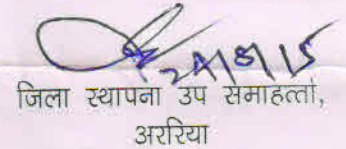 24/8/15
जिला स्थापना उप समाहर्त्ता,
अररिया